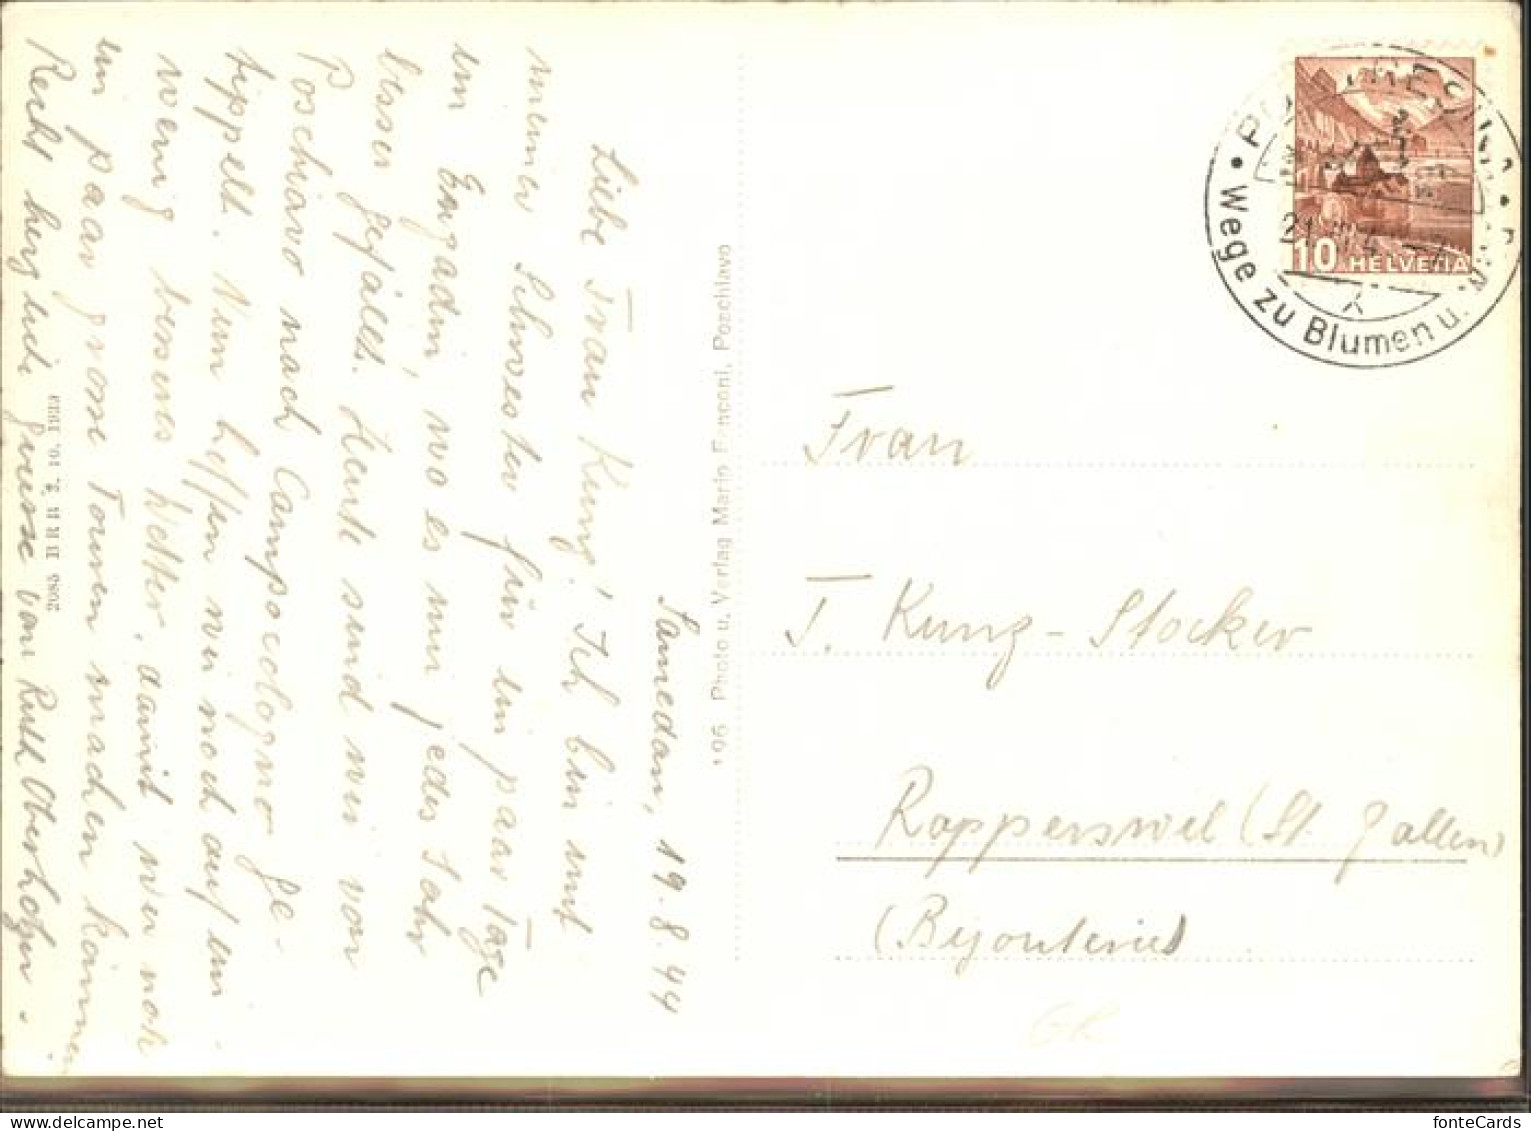 Samedan, 19.8.44
Liebe Frau Kunz! Ich bin mit
meiner Schwester für ein paar Tage
im Engadin, wo es mir jedes Jahr
besser gefällt. Heute sind wir von
Poschiavo nach Campocologno ge-
tippelt. Nun hoffen wir noch auf ein
wenig besseres Wetter, damit wir noch
ein paar grosse Touren machen können.
Recht herzliche Grüsse von Ruth Oberholzer.
Photo u. Verlag Mario Fanconi, Poschiavo
Wege zu Blumen u.
10 HELVETIA
Frau
F. Kunz-Stocker
Rapperswil (St. Gallen)
(Bijouterie)
fonteCards